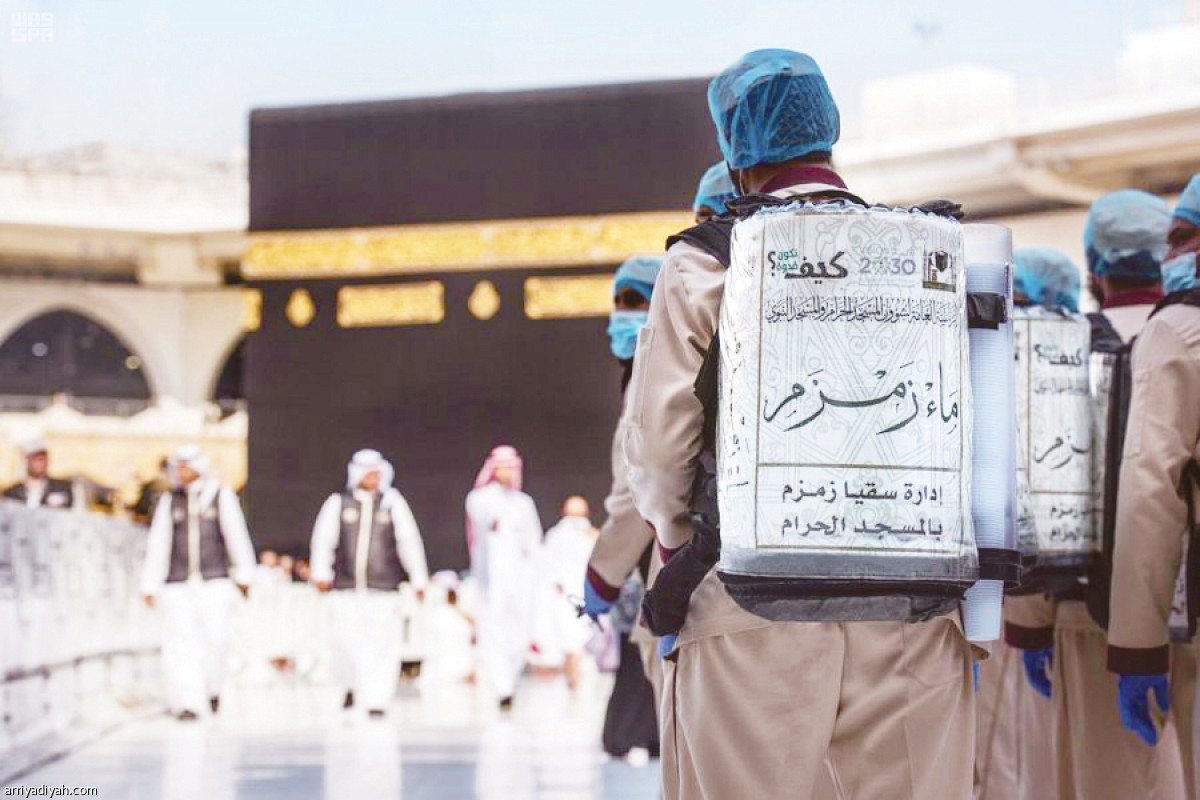 WAS
SPR
كيف نكون قدوة؟
2030
الرئاسة العامة لشؤون المسجد الحرام والمسجد النبوي
مَاءُ زَمْزَمِ
إدارة سقيا زمزم
بالمسجد الحرام
كيف
arriyadiyah.com